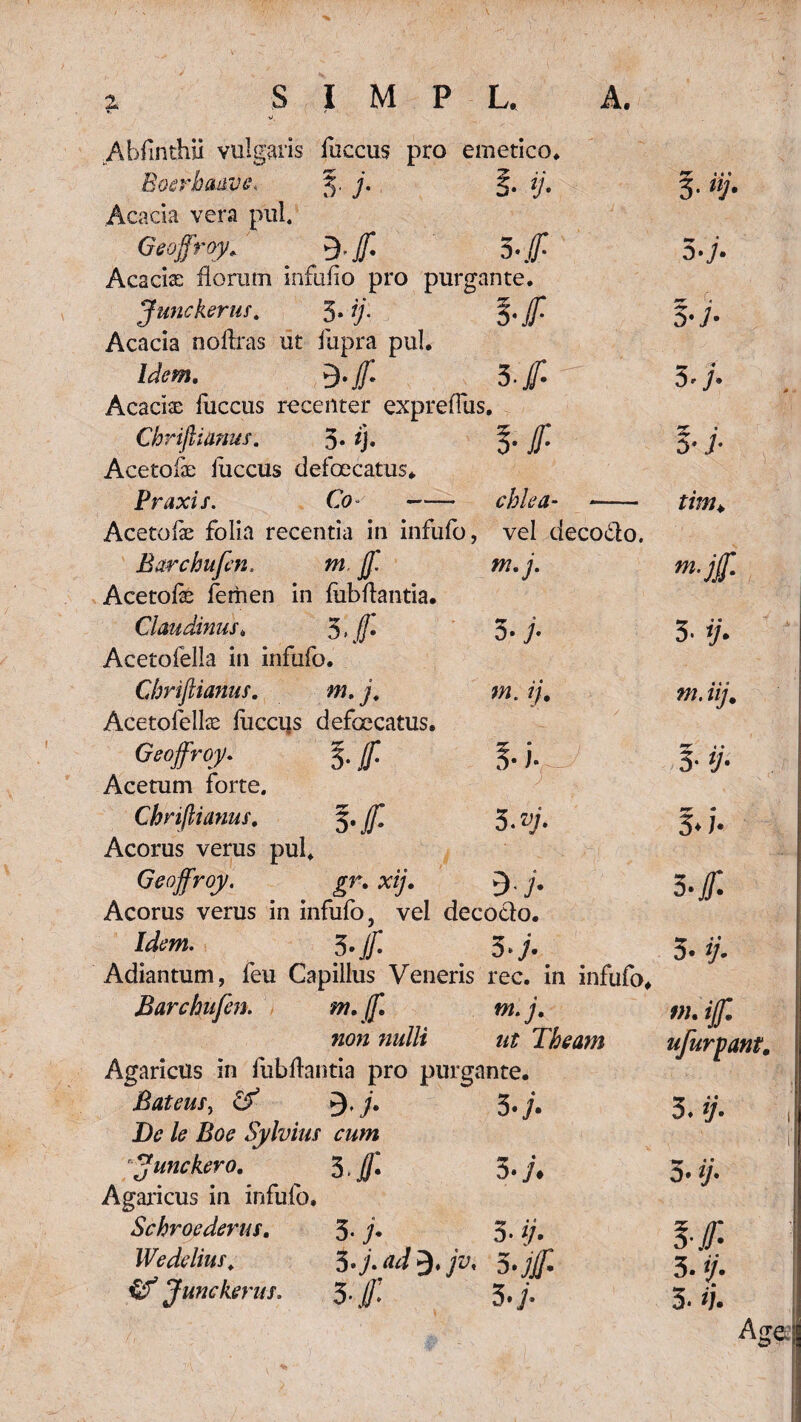 2 SIMPL. A.
Abſinthii vulgaris ſuccus pro emetico.
Boerhaave. ℥. j. ℥. ij. ℥. iij.
Acacia vera pul.
Geoffroy. ℈. ſſ. ʒ. ſſ. ʒ. j.
Acaciæ florum infuſio pro purgante.
Junckerus. ʒ. ij. ℥. ſſ. ℥. j.
Acacia noſtras ut ſupra pul.
Idem. ℈. ſſ. ʒ. ſſ. ʒ. j.
Acaciæ ſuccus recenter expreſſus.
Chriſtianus. ʒ. ij. ℥. ſſ. ℥. j.
Acetoſæ ſuccus defœcatus.
Praxis. Co- —— chlea- —— tim.
Acetoſæ folia recentia in infuſo, vel decocto.
Barchuſen. m. ſſ. m. j. m. jſſ.
Acetoſæ ſemen in ſubſtantia.
Claudinus. ʒ. ſſ. ʒ. j. ʒ. ij.
Acetoſella in infuſo.
Chriſtianus. m. j. m. ij. m. iij.
Acetoſellæ ſuccus defœcatus.
Geoffroy. ℥. ſſ. ℥. j. ℥. ij.
Acetum forte.
Chriſtianus. ℥. ſſ. ʒ. vj. ℥. j.
Acorus verus pul.
Geoffroy. gr. xij. ℈. j. ʒ. ſſ.
Acorus verus in infuſo, vel decocto.
Idem. ʒ. ſſ. ʒ. j. ʒ. ij.
Adiantum, ſeu Capillus Veneris rec. in infuſo.
Barchuſen. m. ſſ. m. j. m. iſſ.
non nulli ut Theam uſurpant.
Agaricus in ſubſtantia pro purgante.
Bateus, & ℈. j. ʒ. j. ʒ. ij.
De le Boe Sylvius cum
Junckero. ʒ. ſſ. ʒ. j. ʒ. ij.
Agaricus in infuſo.
Schroederus. ʒ. j. ʒ. ij. ℥. ſſ.
Wedelius. ʒ. j. ad ℈. jv. ʒ. jſſ. ʒ. ij.
& Junckerus. ʒ. ſſ. ʒ. j. ʒ. ij.
Age